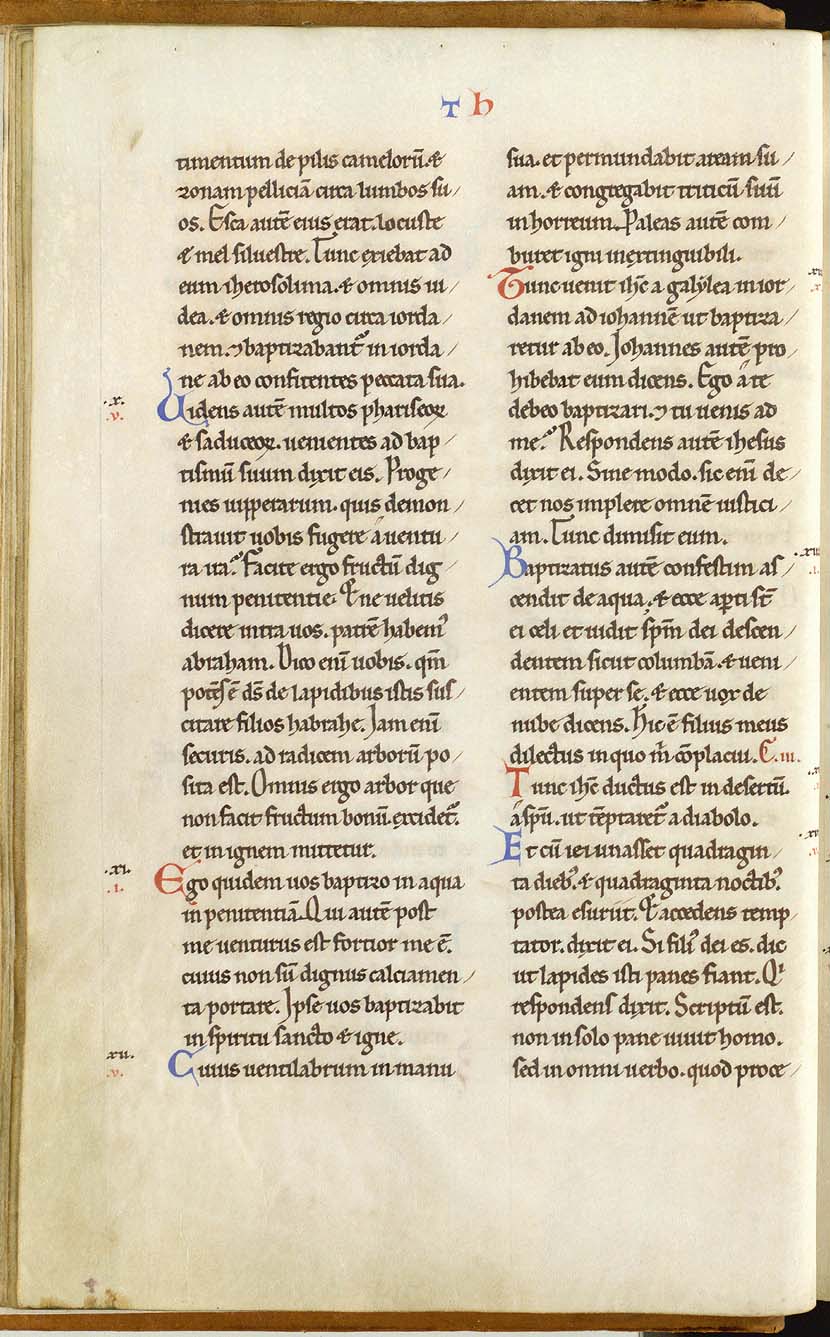 T h
timentum de pilis camelorū. &
zonam pelliciā circa lumbos su/
os. Esca autē eius erat. locuste
& mel siluestre. Tunc exiebat ad
eum iherosolima. & omnis iu/
dea. & omnis regio circa iorda/
nem. ⁊ baptizabant᷒ in iorda/
ne ab eo confitentes peccata sua.
.x.
.v.
Uidens autē multos phariseoꝝ
& saduceoꝝ. uenientes ad bap/
tismū suum dixit eis. Proge/
nies uipperarum. quis demon/
strauit uobis fugere a uentu/
ra ira? Facite ergo fructū dig/
num penitentie. Et ne uelitis
dicere intra uos. patrē habem᷒
abraham. Dico enī uobis. qm̄
potēs ē ds̄ de lapidibus istis sus/
citare filios habrahe. Jam enī
securis. ad radicem arborū po/
sita est. Omnis ergo arbor que
non facit fructum bonū. excidet᷒.
et in ignem mittetur.
.xi.
.i.
Ego quidem uos baptizo in aqua
in penitentiā. Qui autē post
me uenturus est fortior me ē.
cuius non sū dignus calciamen/
ta portare. Ipse uos baptizabit
in spiritu sancto & igne.
xii.
.v.
Cuius uentilabrum in manu
sua. et permundabit aream su/
am. & congregabit triticū suū
in horreum. Paleas autē com/
buret igni inextinguibili.
Tunc uenit ih̄c a galylea in ior/
danem ad iohannē ut baptiza/
retur ab eo. Johannes autē pro/
hibebat eum dicens. Ego a te
debeo baptizari. ⁊ tu uenis ad
me? Respondens autē ihesus
dixit ei. Sine modo. sic enī de/
cet nos implere omnē iustici/
am. Tunc dimisit eum.
Baptizatus autē confestim as/
cendit de aqua. & ecce apti st̄
ei celi et uidit sp̄m dei descen/
dentem sicut columbā. & ueni/
entem super se. & ecce uox de
nube dicens. Hic ē filius meus
dilectus in quo m̄ cōplacui. C. iii.
Tunc ih̄c ductus est in desertū.
a sp̄u. ut tēptaret᷒ a diabolo.
Et cū ieiunasset quadragin/
ta dieb᷒. & quadraginta noctib᷒.
postea esuriit. Et accedens temp/
tator. dixit ei. Si fili᷒ dei es. dic
ut lapides isti panes fiant. Qi
respondens dixit. Scriptū est.
non in solo pane uiuit homo.
sed in omni uerbo. quod proce/